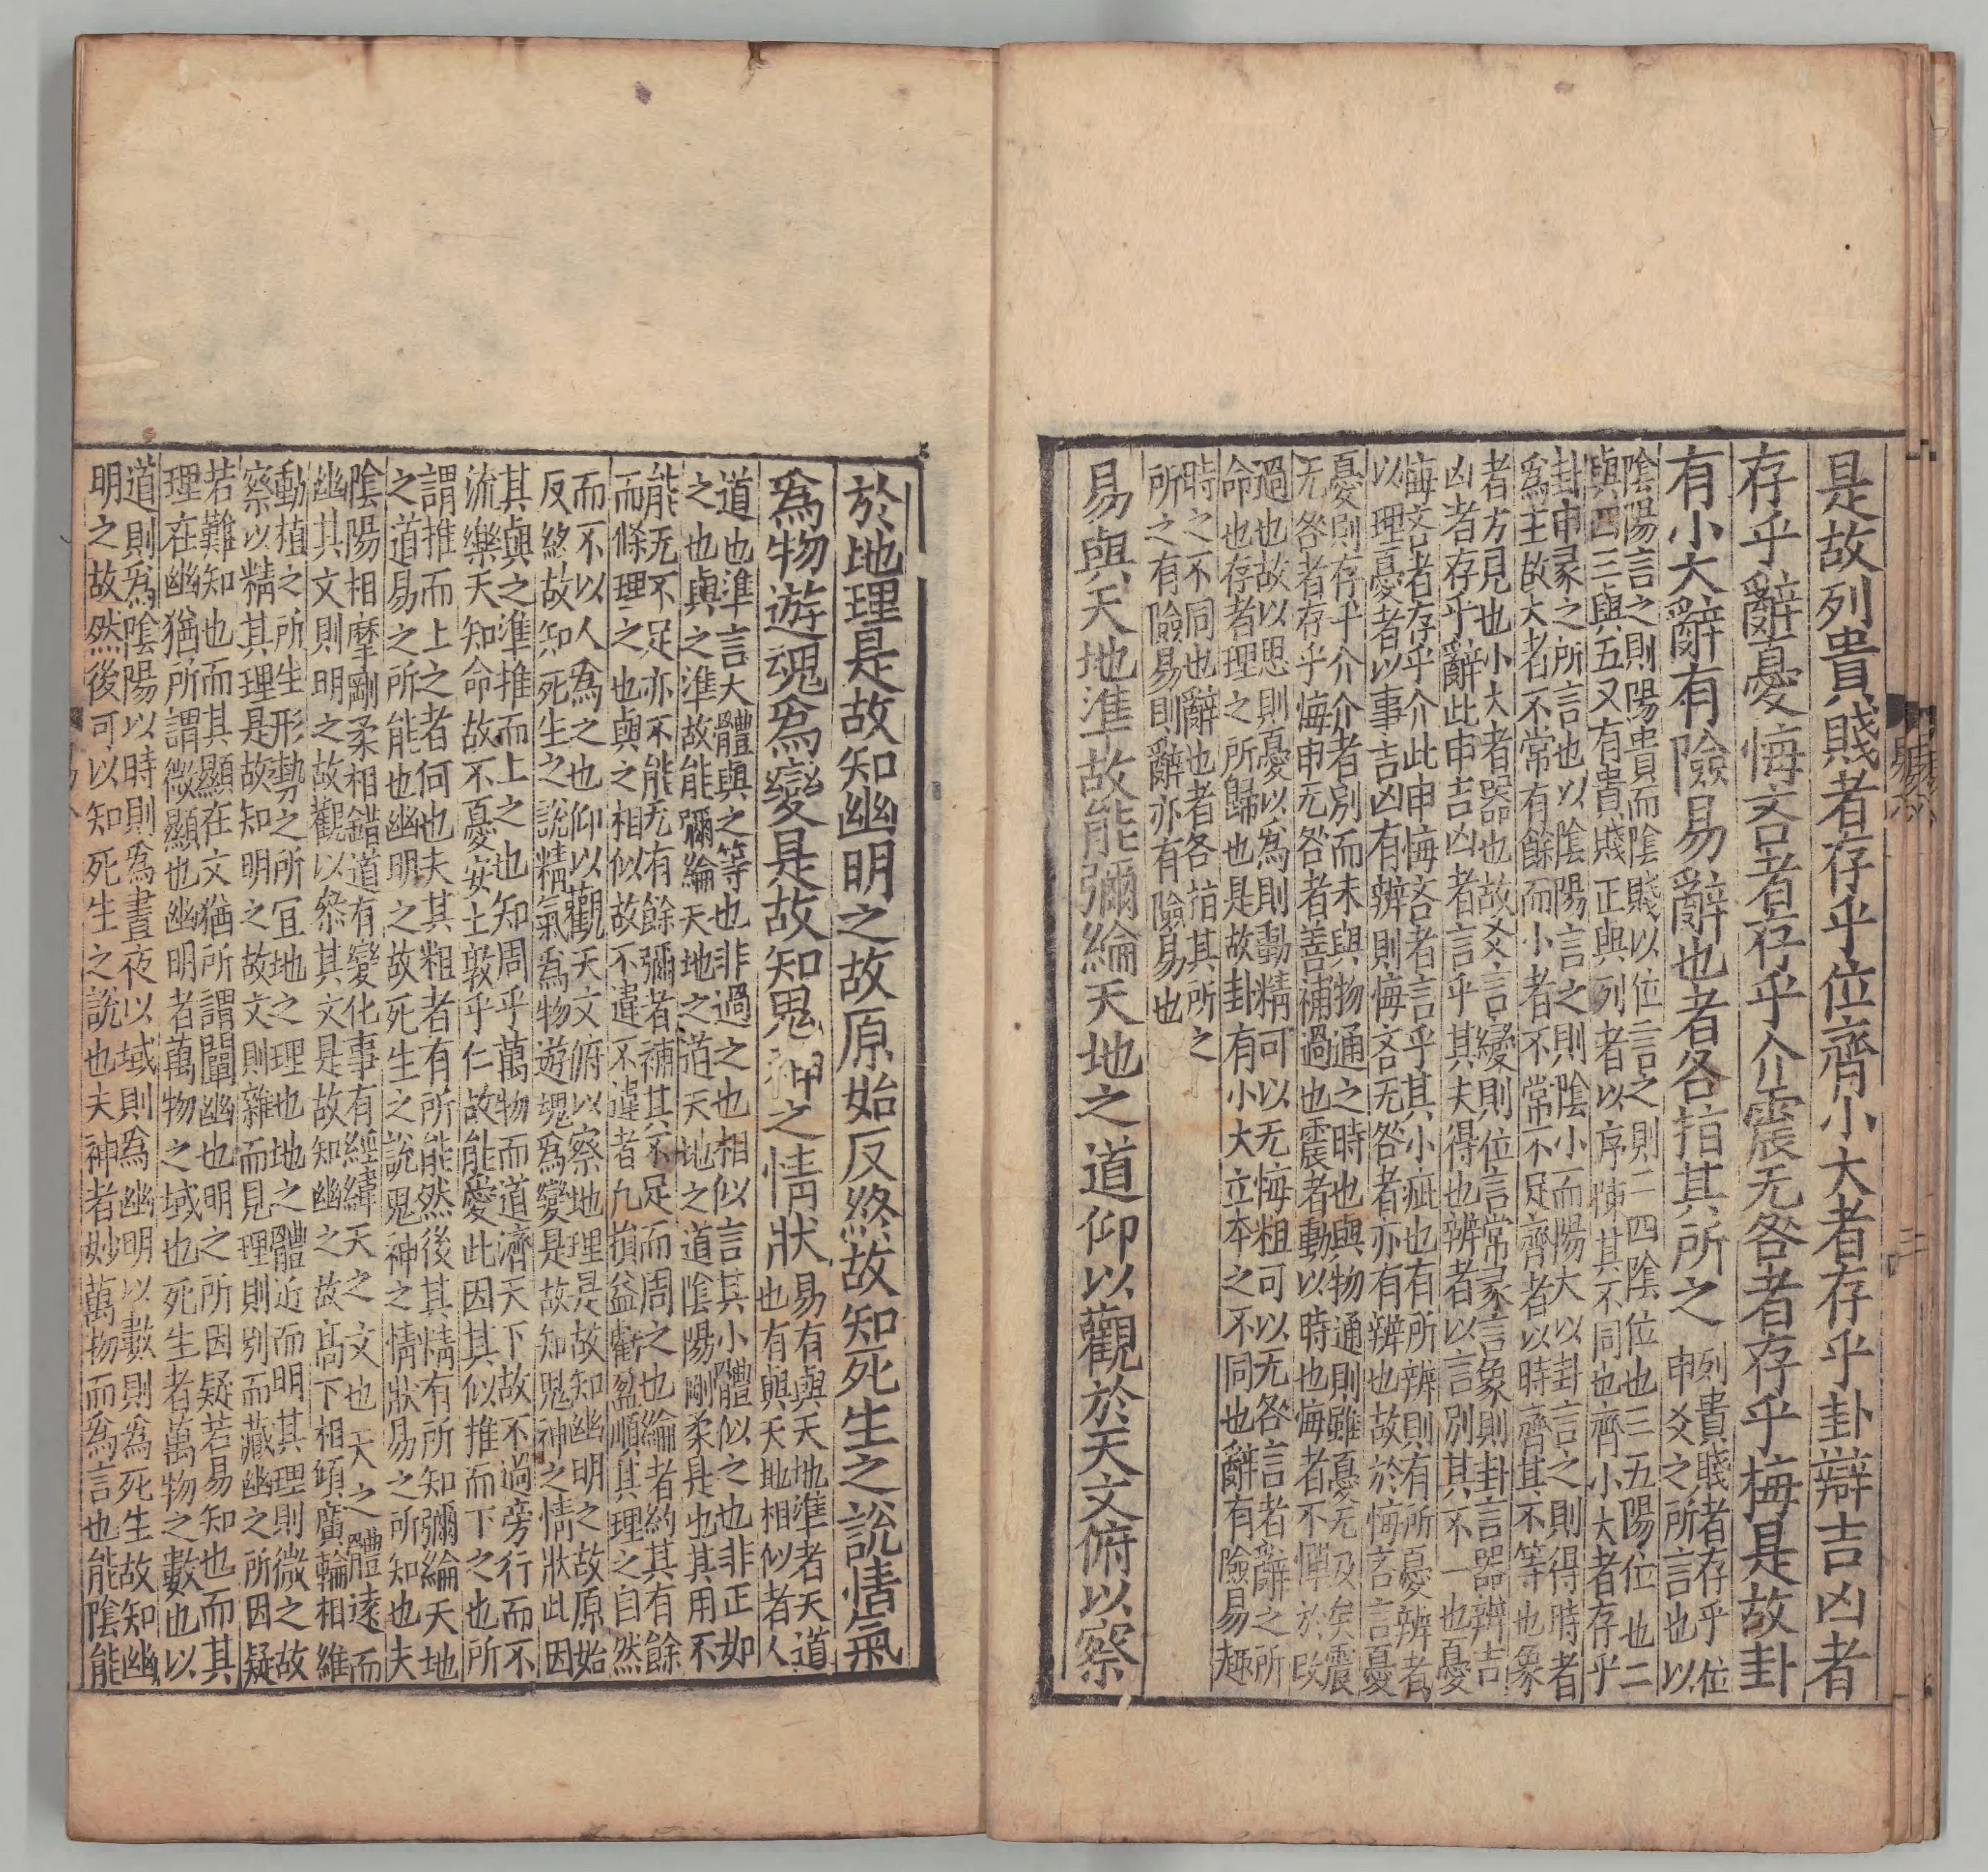 是故列貴賤者存乎位齊小大者存乎卦辯吉凶者
存乎辭憂悔吝者存乎介震无咎者存乎悔是故卦
有小大辭有險易辭也者各指其所之
列貴賤者存乎位
申爻之所言也以
陰陽言之則陽貴而陰賤以位言之則二四陰位也三五陽位也二
與四三與五又有貴賤正與列者以序陳其不同也齊小大者存乎
卦申彖之所言也以陰陽言之則陰小而陽大以卦言之則得時者
爲主故大者不常有餘而小者不常不足齊者以時齊其不等也象
者方見也小大者器也故爻言變則位言常彖言象則卦言器辨吉
凶者存乎辭此申吉凶者言乎其夫得也辨者以言別其不一也憂
悔吝者存乎介此申悔吝者言乎其小疵也有所辨則有所憂辨者
以理憂者以事吉凶有辨則悔吝无咎者亦有辨也故於悔吝言憂
憂則存乎介介者別而未與物通之時也與物通則雖憂无及矣震
无咎者存乎悔申无咎者善補過也震者動以時也悔者不憚於改
過也故以思則憂以爲則動精可以无悔粗可以无咎言者辭之所
命也存者理之所歸也是故卦有小大立本之不同也辭有險易趣
時之不同也辭也者各指其所之
所之有險易則辭亦有險易也
易與天地準故能彌綸天地之道仰以觀於天文俯以察
易六
三
於地理是故知幽明之故原始反終故知死生之說精氣
爲物遊魂爲變是故知鬼神之情狀
易有與天地準者天道
也有與天地相似者人
道也準言大體與之等也非過之也相似言其小體似之也非正如
之也與之準故能彌綸天地之道天地之道陰陽剛柔是也其用不
能无不足亦不能无有餘彌者補其不足而周之也綸者約其有餘
而條理之也與之相似故不違不違者凡損益虧盈順其理之自然
而不以人爲之也仰以觀天文俯以察地理是故知幽明之故原始
反終故知死生之說精氣爲物遊魂爲變是故知鬼神之情狀此因
其與之準推而上之也知周乎萬物而道濟天下故不過旁行而不
流樂天知命故不憂安土敦乎仁故能愛此因其似推而下之也所
謂推而上之者何也夫其粗者有所能然後其情有所知彌綸天地
之道易之所能也幽明之故死生之說鬼神之情狀易之所知也夫
陰陽相摩剛柔相錯道有變化事有經緯天之文也天之體遠而
幽其文則明之故觀以叅其文是故知幽之故髙下相傾廣輪相維
動植之所生形勢之所冝地之理也地之體近而明其理則微之故
察以精其理是故知明之故文則雜而見理則別而藏幽之所因疑
若難知也而其顯在文猶所謂闡幽也明之所因疑若易知也而其
理在幽猶所謂微顯也幽明者萬物之域也死生者萬物之數也以
道則爲陰陽以時則爲晝夜以域則爲幽明以數則爲死生故知幽
明之故然後可以知死生之說也夫神者妙萬物而爲言也能陰能